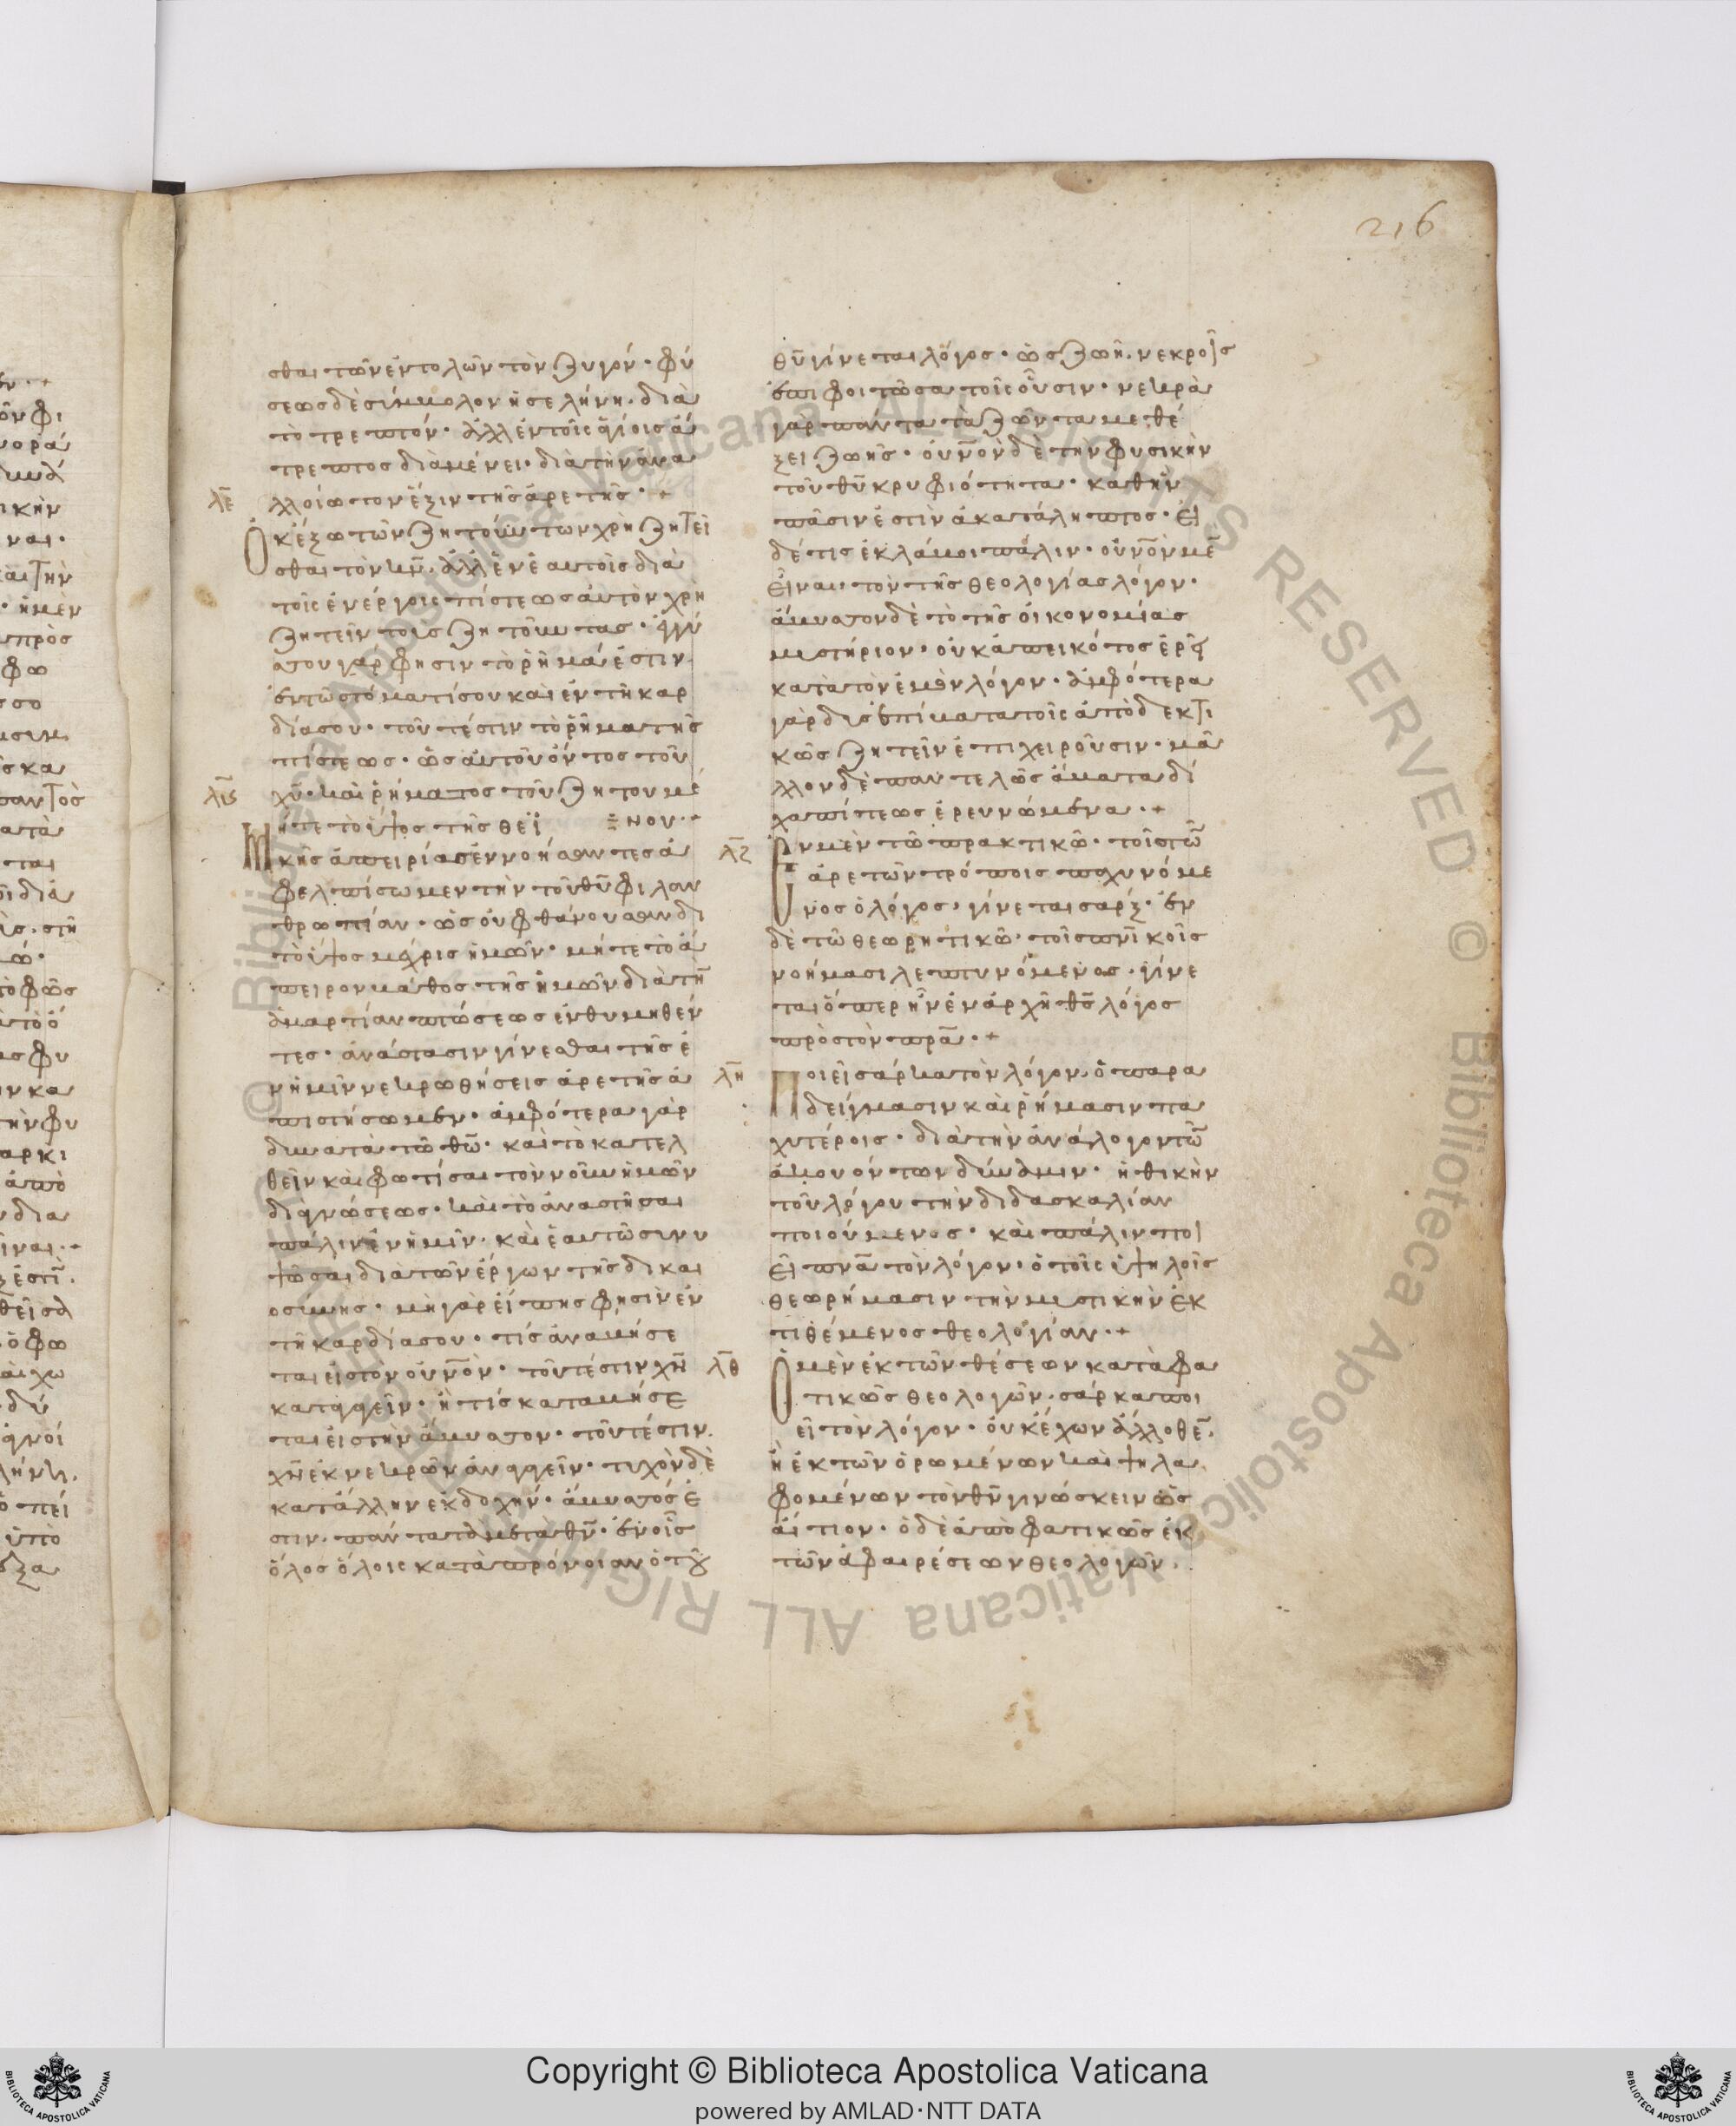 216
σθαι τῶν ἐντολῶν τὸν ζυγόν· φύ
σεως δὲ σύμβολον ἡ σελήνη· διὰ
τὸ τρεπτόν· ἀλλ' ἐν τοῖς ἁγίοις ἄ
τρεπτος διαμένει· διὰ τὴν ἀνα
λλοίωτον ἕξιν τῆς ἀρετῆς·+
λε
Οὐκ ἔξω τῶν ζητούντων χρὴ ζητεῖ
σθαι τὸν κν̅· ἀλλ' ἐν ἑαυτοῖς διὰ
τοῖς ἐν ἔργοις πίστεως αὐτὸν χρὴ
ζητεῖν τοὺς ζητοῦντας· ἐγγύ
σου γάρ φησιν τὸ ῥῆμά ἐστιν·
ἐν τῷ στόματί σου καὶ ἐν τῇ καρ
δία σου· τουτέστιν τὸ ῥῆμα τῆς
πίστεως· ὡς αὐτοῦ ὄντος τοῦ
χυ̅· καὶ ῥήματος τοῦ ζητουμέ
νου·+
λϛ
Μήτε τὸ ὕψος τῆς θεϊ
κῆς ἀπειρίας ἐννοήσαντες ἀ
φελπίσωμεν τὴν τοῦ θυ̅ φιλαν
θρωπίαν· ὡς οὐ φθάνουσαν διὰ
τὸ ὕψος μέχρις ἡμῶν· μήτε τὸ ἄ
πειρον βάθος τῆς ἡμῶν διὰ τὴν
ἁμαρτίαν πτώσεως ἐνθυμηθέν
τες· ἀνάστασιν γίνεσθαι τῆς ἐ
ν ἡμῖν νεκρωθήσεις ἀρετῆς ἀ
πιστήσωμεν· ἀμφότερα γὰρ
δυνατὰ τῷ θω̅· καὶ τὸ κατελ
θεῖν καὶ φωτίσαι τὸν νοῦν ἡμῶν
διὰ γνώσεως· καὶ τὸ ἀναστῆσαι
πάλιν ἐν ἡμῖν· καὶ ἑαυτῷ συνυ
ψῶσαι διὰ τῶν ἔργων τῆς δικαι
οσύνης· μὴ γὰρ εἴπης φησὶν ἐν
τῇ καρδία σου· τίς ἀναβήσε
ται εἰς τὸν οὐνον̅· τουτέστιν χν̅
καταγαγεῖν· ἢ τίς καταβήσε
ται εἰς τὴν ἄβυσσον· τουτέστιν
χν̅ ἐκ νεκρῶν ἀναγαγεῖν· τυχὸν δὲ
κατ' ἄλλην ἐκδοχήν· ἄβυσσός ἐ
στιν· πάντα τὰ μετὰ θν̅· ἐν οἷς
ὅλος ὅλοις κατὰ πρόνοιαν ὁ τοῦ
θυ̅ γίνεται λόγος· ὡς ζωὴ· νεκροῖς
ἐπιφοιτῶσα τοῖς οὖσιν· νεκρὰ
γὰρ πάντα τὰ ζῶντα μεθέ
ξει ζωῆς· οὐνον̅ δὲ τὴν φυσικὴν
τοῦ θυ̅ κρυφιότητα· καθ' ἣν
πᾶσιν ἐστὶν ἀκατάληπτος· εἰ
δέ τις ἐκλάβοι πάλιν· οὐνον̅ μὲν
εἶναι τὸν τῆς θεολογίας λόγον·
ἄβυσσον δὲ τὸ τῆς οἰκονομίας
μυστήριον· οὐκ ἀπεικότος ἐρεῖ
κατὰ τὸν ἐμὸν λόγον· ἀμφότερα
γὰρ δυσεπίβατα τοῖς ἀποδεκτι
κῶς ζητεῖν ἐπιχειροῦσιν· μᾶ
λλον δὲ παντελῶς ἄβατα δί
χα πίστεως ἐρευνώμενα·+
λζ
Ἐν μὲν τῷ πρακτικῷ· τοῖς τῶν
ἀρετῶν τρόποις παχυνόμε
νος ὁ λόγος· γίνεται σάρξ· ἐν
δὲ τῷ θεωρητικῷ· τοῖς πνικοῖς
νοήμασι λεπτυνόμενος· γίνε
ται ὅπερ ἦν ἐν ἀρχῇ θς̅ λόγος
πρὸς τὸν πρα̅·+
λη
Ποιεῖ σάρκα τὸν λόγον· ὁ παρα
δείγμασιν καὶ ῥήμασιν πα
χυτέροις· διὰ τὴν ἀνάλογον τῶν
ἀκουόντων δύναμιν· ἠθικὴν
τοῦ λόγου τὴν διδασκαλίαν
ποιούμενος· καὶ πάλιν ποι
εῖ πνα̅ τὸν λόγον· ὁ τοῖς ὑψηλοῖς
θεωρήμασιν τὴν μυστικὴν ἐκ
τιθέμενος θεολογίαν·+
λθ
Ὁ μὲν ἐκ τῶν θέσεων καταφα
τικῶς θεολογῶν· σάρκα ποι
εῖ τὸν λόγον· οὐκ ἔχων ἄλλοθεν·
ἢ ἐκ τῶν ὁρωμένων καὶ ψηλα
φομένων τὸν θν̅ γινώσκειν ὡς
αἴτιον· ὁ δὲ ἀποφατικῶς ἐκ
τῶν ἀφαιρέσεων θεολογῶν·
© Biblioteca Apostolica Vaticana ALL RIGHTS RESERVED
Copyright © Biblioteca Apostolica Vaticana
powered by AMLAD·NTT DATA
BIBLIOTECA APOSTOLICA VATICANA
BIBLIOTECA APOSTOLICA VATICANA